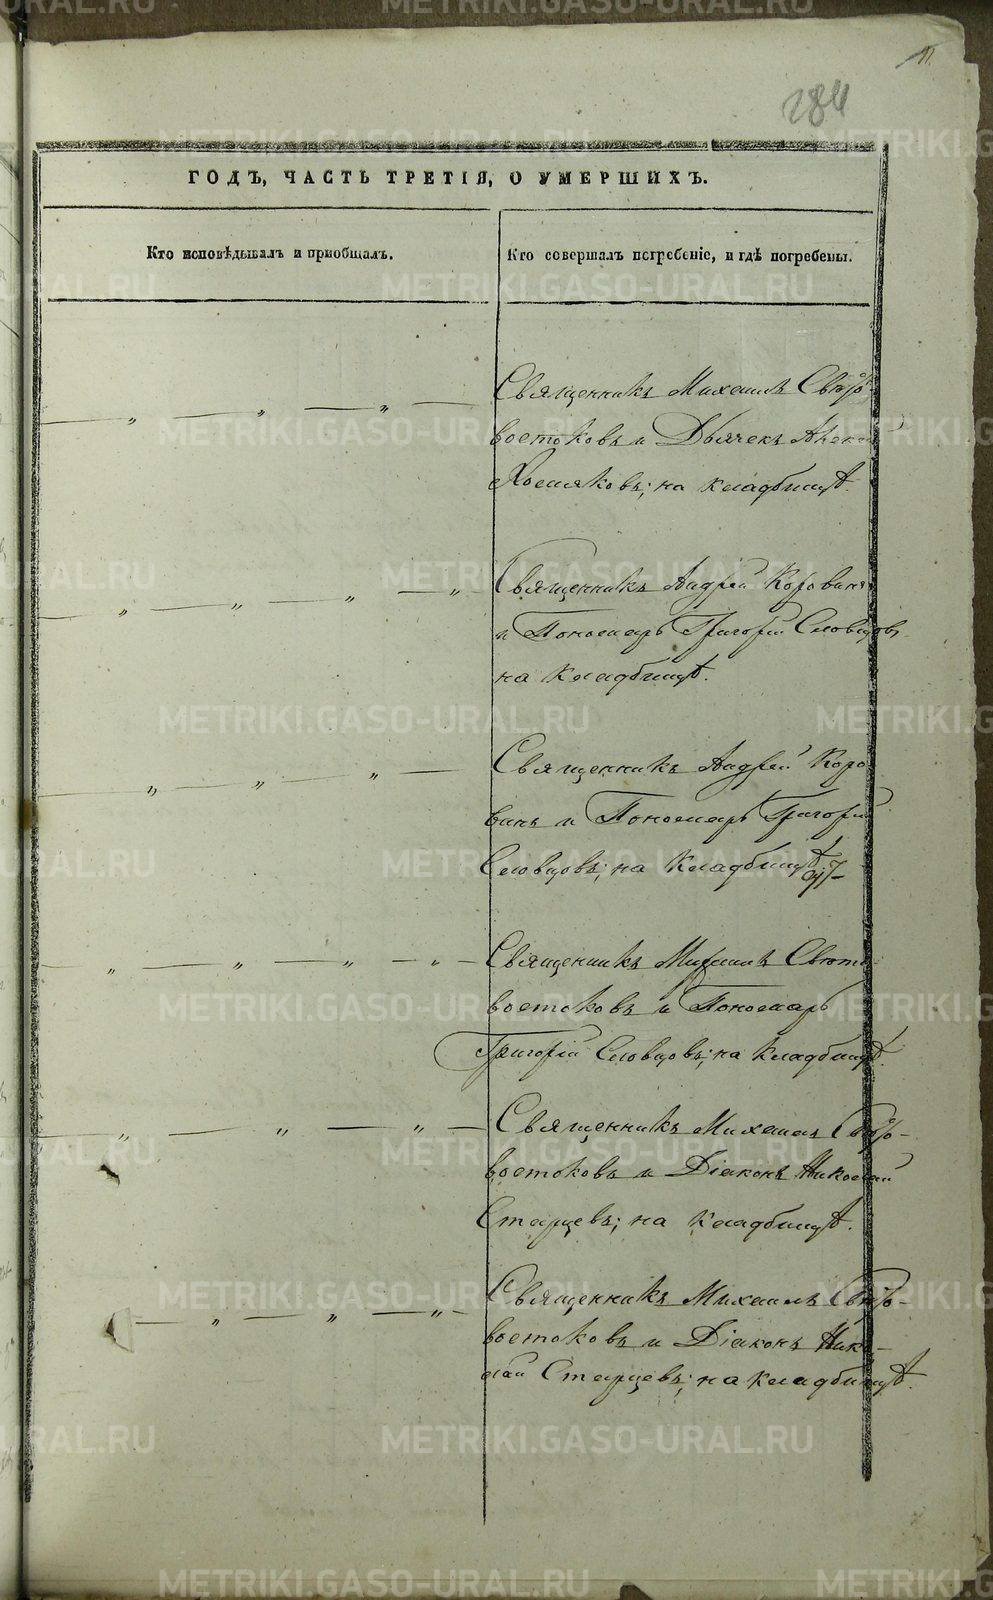 11
284
ГОДЪ, ЧАСТЬ ТРЕТІЯ, О УМЕРШИХЪ.
Кто исповѣдывалъ и пріобщалъ.
Кто совершалъ погребеніе, и гдѣ погребены.
Священникъ Михаилъ Свѣто-
востоковъ и Дьячекъ
Хосияковъ; на кладбищѣ.
Священникъ Андрей Коровинъ
и Пономарь Григорій Словцовъ
на кладбищѣ.
Священникъ Андрей Коро
винъ и Пономарь Григорій
Словцовъ; на кладбищѣ
Священникъ Михаилъ Свѣто-
востоковъ и Пономарь
Григорій Словцовъ; на кладбищѣ.
Священникъ Михаилъ Свѣто-
востоковъ и Діаконъ Николай
Старцевъ; на кладбищѣ.
Священникъ Михаилъ Свѣто-
востоковъ и Діаконъ Нико-
лай Старцевъ; на кладбищѣ.
METRIKI.GASO-URAL.RU